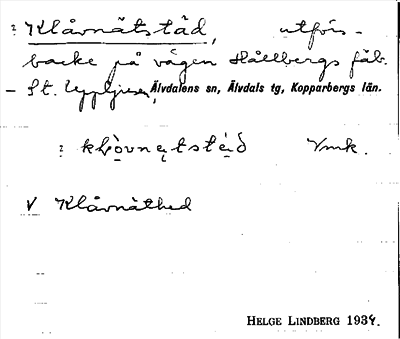 ? Klåvnätstäd, utförs-
backe på vägen Hållbergs fäb.
- St. Älvdalens sn, Älvdals tg, Kopparbergs län.
? Vmk.
V Klåvnäthed
HELGE LINDBERG 1934.